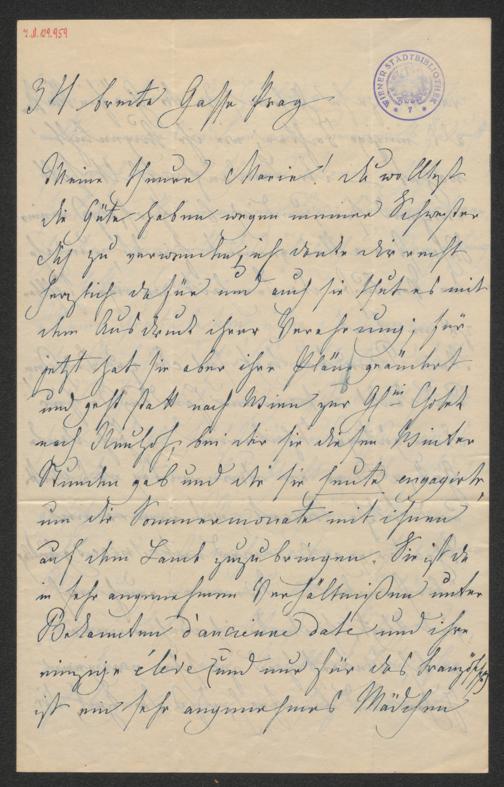 J.N. 129.959
WIENER STADTBIBLIOTHEK
34 breite Gasse Prag
Meine theure Marie! du wolltest
die Güte haben wegen meiner Schwester
dich zu verwenden, ich danke dir recht
herzlich dafür und auch sie thut es mit
dem Ausdruck ihrer Verehrung; für
jetzt hat sie aber ihre Pläne geändert
und geht statt nach Wien zur Gfin Chotek
nach Neuhof, bei der sie diesen Winter
Stunden gab und die sie heute engagirte,
um die Sommermonate mit ihnen
auf dem Lande zuzubringen. Sie ist da
in sehr angenehmen Verhältnißen unter
Bekannten d'ancienne date und ihre
einzige élève (und nur für das Französische)
ist ein sehr angenehmes Mädchen